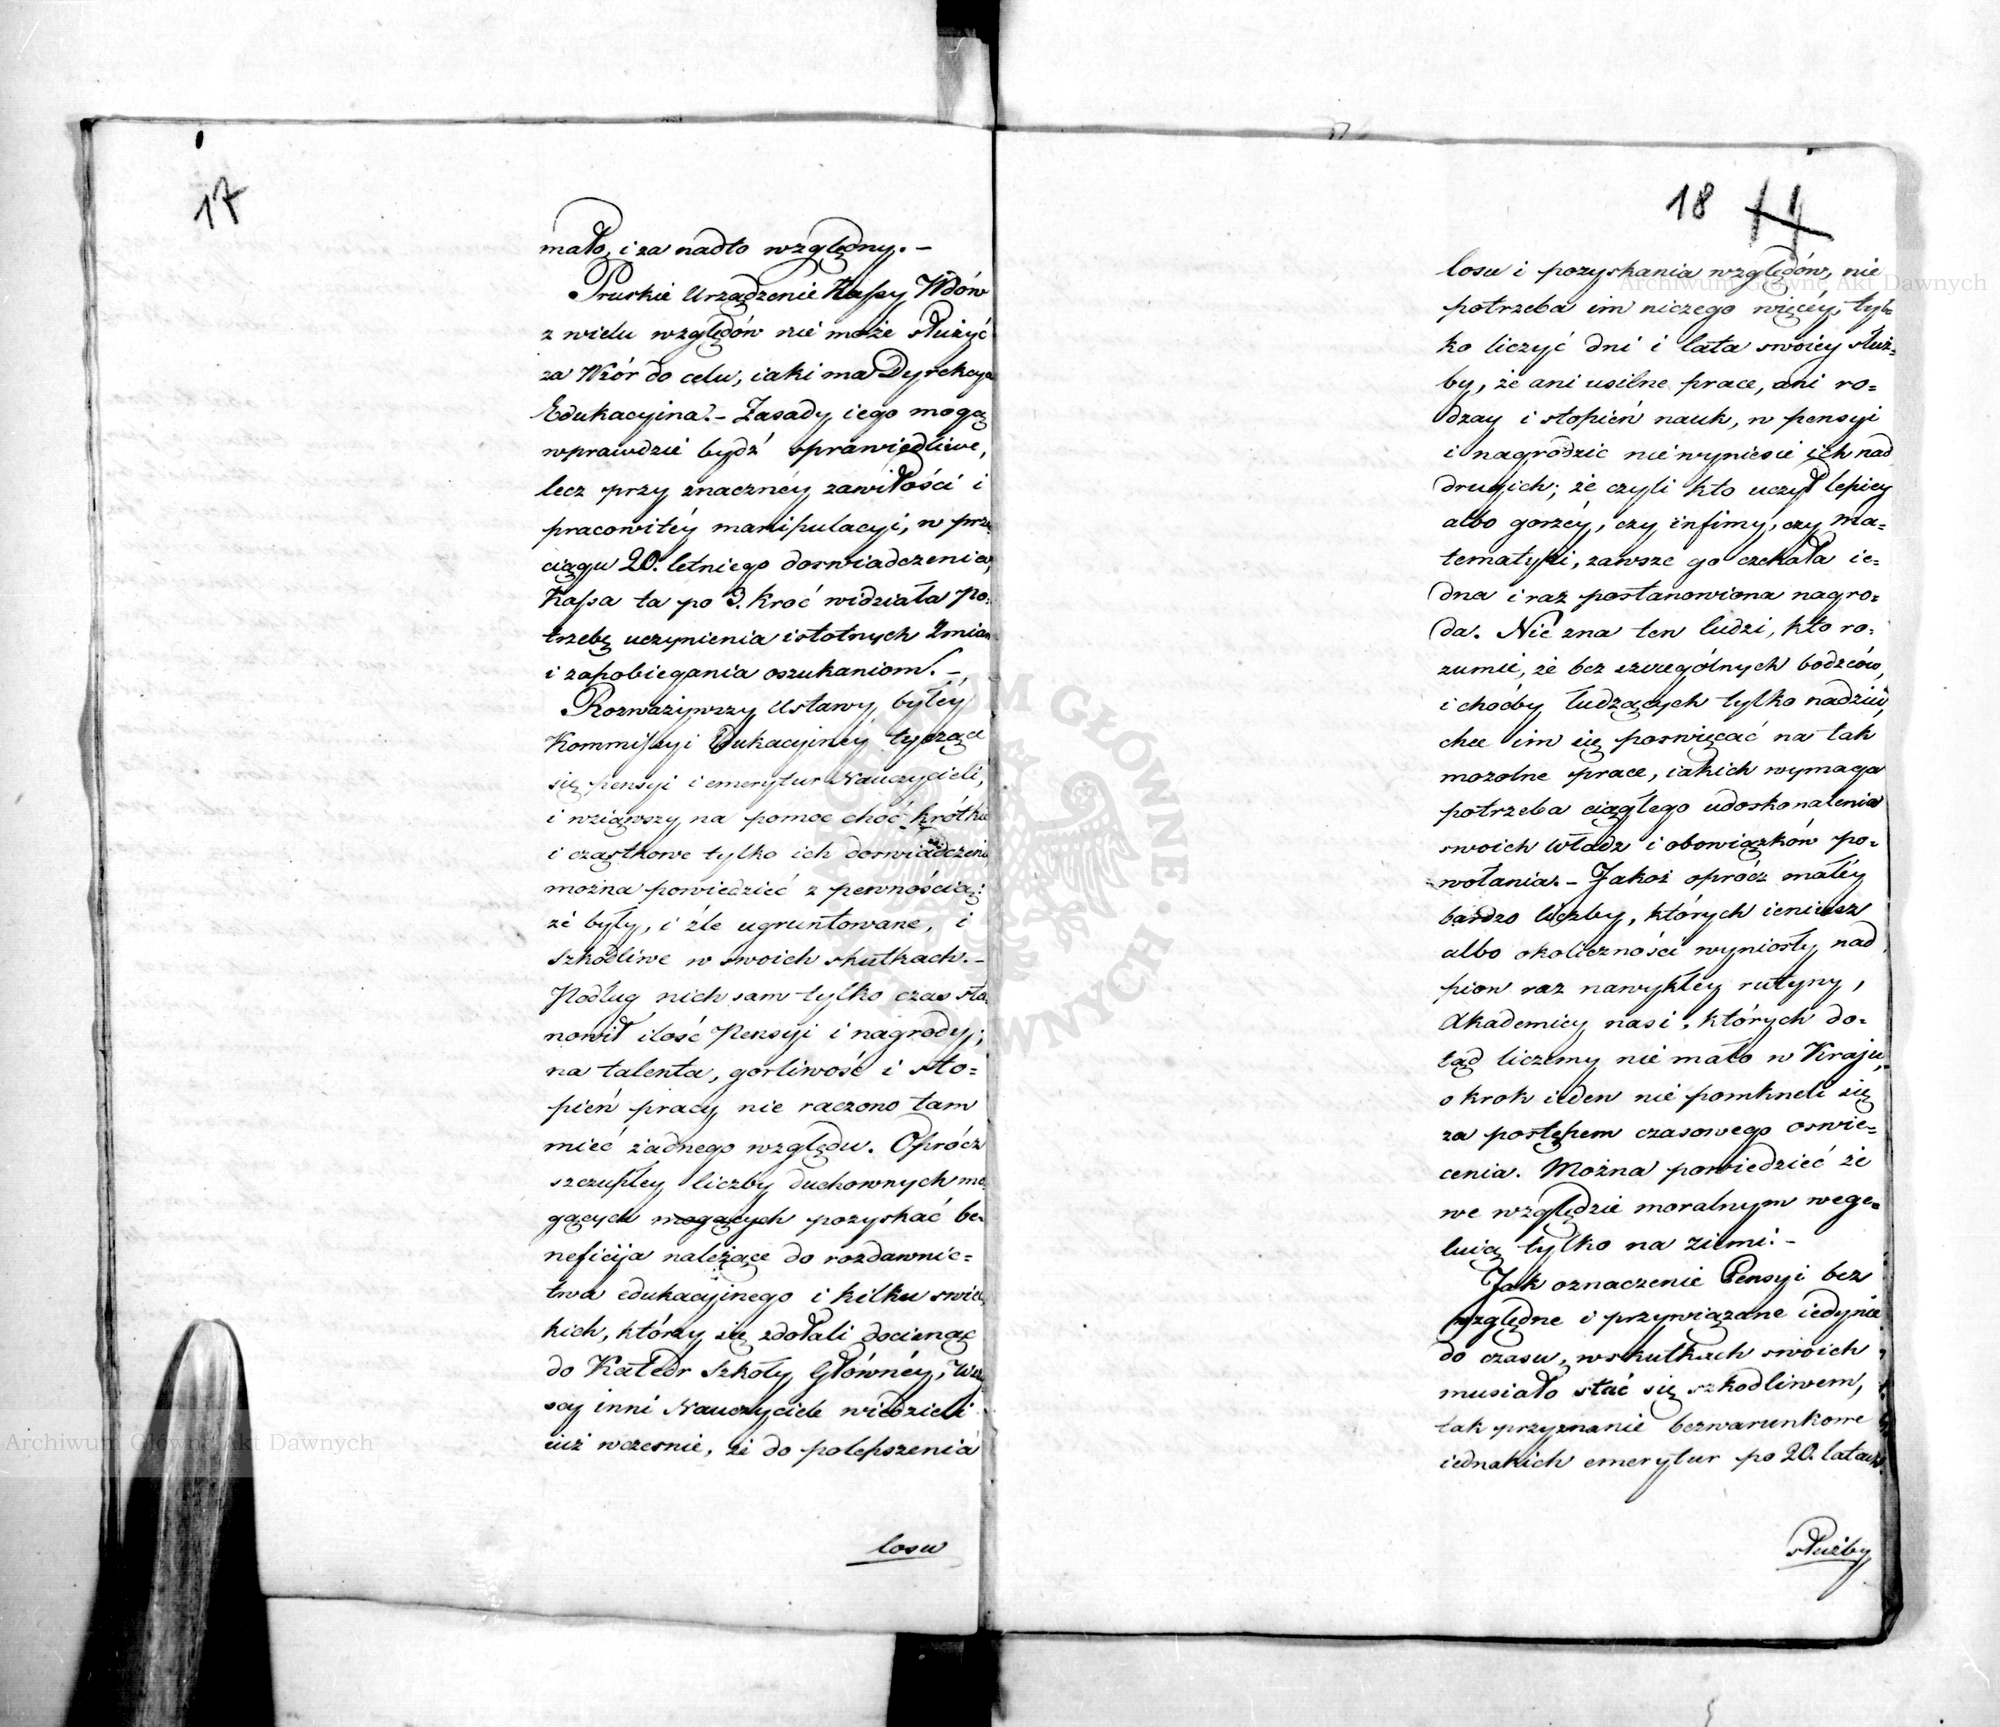 17
mało, i za nadto względny. –
Pruskie Urządzenie Kassy Wdów
z wielu względów nie może służyć
za Wzór do celu, iaki ma Dyrekcya
Edukacyina. – Zasady iego mogą
wprawdzie bydź sprawiedliwe,
lecz przy znacznéy zawiłości i
pracowitéy manipulacyi, w prze
ciągu 20. letniego doswiadczenia,
Kassa ta po 3. kroć widziała po-
trzebę uczynienia istotnych Zmian
i zapobiegania oszukaniom. –
Rozważywszy Ustawy byłéy
Kommissyi Edukacyinéy tyczące
się pensyi i emerytur Nauczycieli,
i wziąwszy na pomoc choć krótkie
i cząstkowe tylko ich doswiadczenie
można powiedzieć z pewnością:
że były, i źle ugruntowane, i
szkodliwe w swoich skutkach. –
Podług nich sam tylko czas sta
nowił ilość Pensyi i nagrody;
na talenta, gorliwość i sto=
pień pracy nie raczono tam
mieć żadnego względu. Oprócz
szczupłey liczby duchownych mo
gących mogących pozyskać be-
neficija należące do rozdawnic=
twa edukacyinego i kilku swiec
kich, którzy się zdołali docisnąć
do Katedr Szkoły Głównéy, Wszy
scy inni Nauczyciele wiedzieli
iuż wczesnie, że do polepszenia
losu
18 11
losu i pozyskania względów, nie
potrzeba im niczego więcéy, tyl-
ko liczyć dni i lata swoiey służ=
by, że ani usilne prace, ani ro=
dzay i stopień nauk, w pensyi
i nagrodzie nie wyniesie ich nad
drugich; że czyli kto uczył lepiey
albo gorzéy, czy infimy, czy Ma=
tematyki, zawsze go czekała ie=
dna i raz postanowiona nagro=
da. Nie zna ten ludzi, kto ro-
zumie, że bez szczególnych bodzców,
i choćby łudzących tylko nadziei,
chce im się poswięcać na tak
mozolne prace, iakich wymaga
potrzeba ciągłego udoskonalenia
swoich władz i obowiązków po-
wołania. – Jakoż oprócz małéy
bardzo liczby, których ieniusz
albo okoliczności wyniosły nad
pion raz nawykłey rutyny,
Akademicy nasi, których do-
tąd liczemy nie mało w Kraju,
o krok ieden nie pomkneli się
za postępem czasowego oswie=
cenia. Można powiedzieć że
we względzie moralnym wege=
luią tylko na ziemi. –
Jak oznaczenie Pensyi bez
względne i przywiązane iedynie
do czasu, w skutkach swoich
musiało stać się szkodliwem,
tak przyznanie bezwarunkowe
iednakich emerytur po 20. latach
służby
Archiwum Główne Akt Dawnych
Archiwum Główne Akt Dawnych